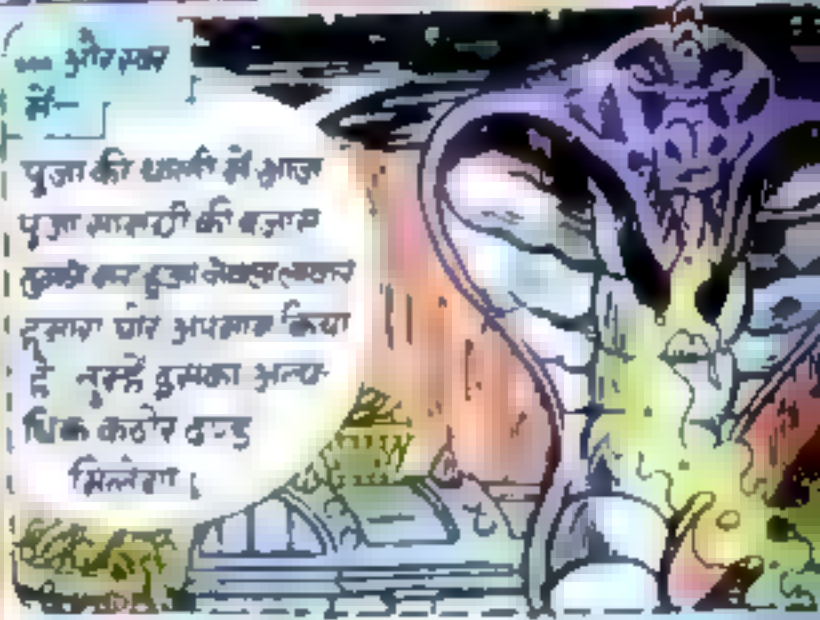 ... और स्वर
में—
पूजा की थाली में आज
पूजा सामग्री की बजाय
तुमने
हमारा घोर अपमान किया
है तुम्हें इसका अत्य-
धिक कठोर दण्ड
मिलेगा।